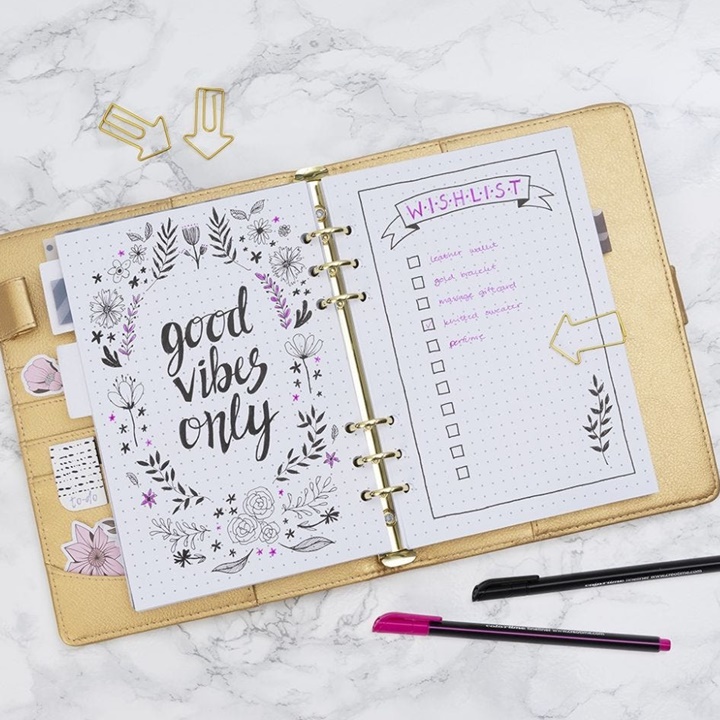 good
vibes
only
W·I·S·H·L·I·S·T
leather wallet
gold bracelet
massage giftcard
knitted sweater
perfume
to-do